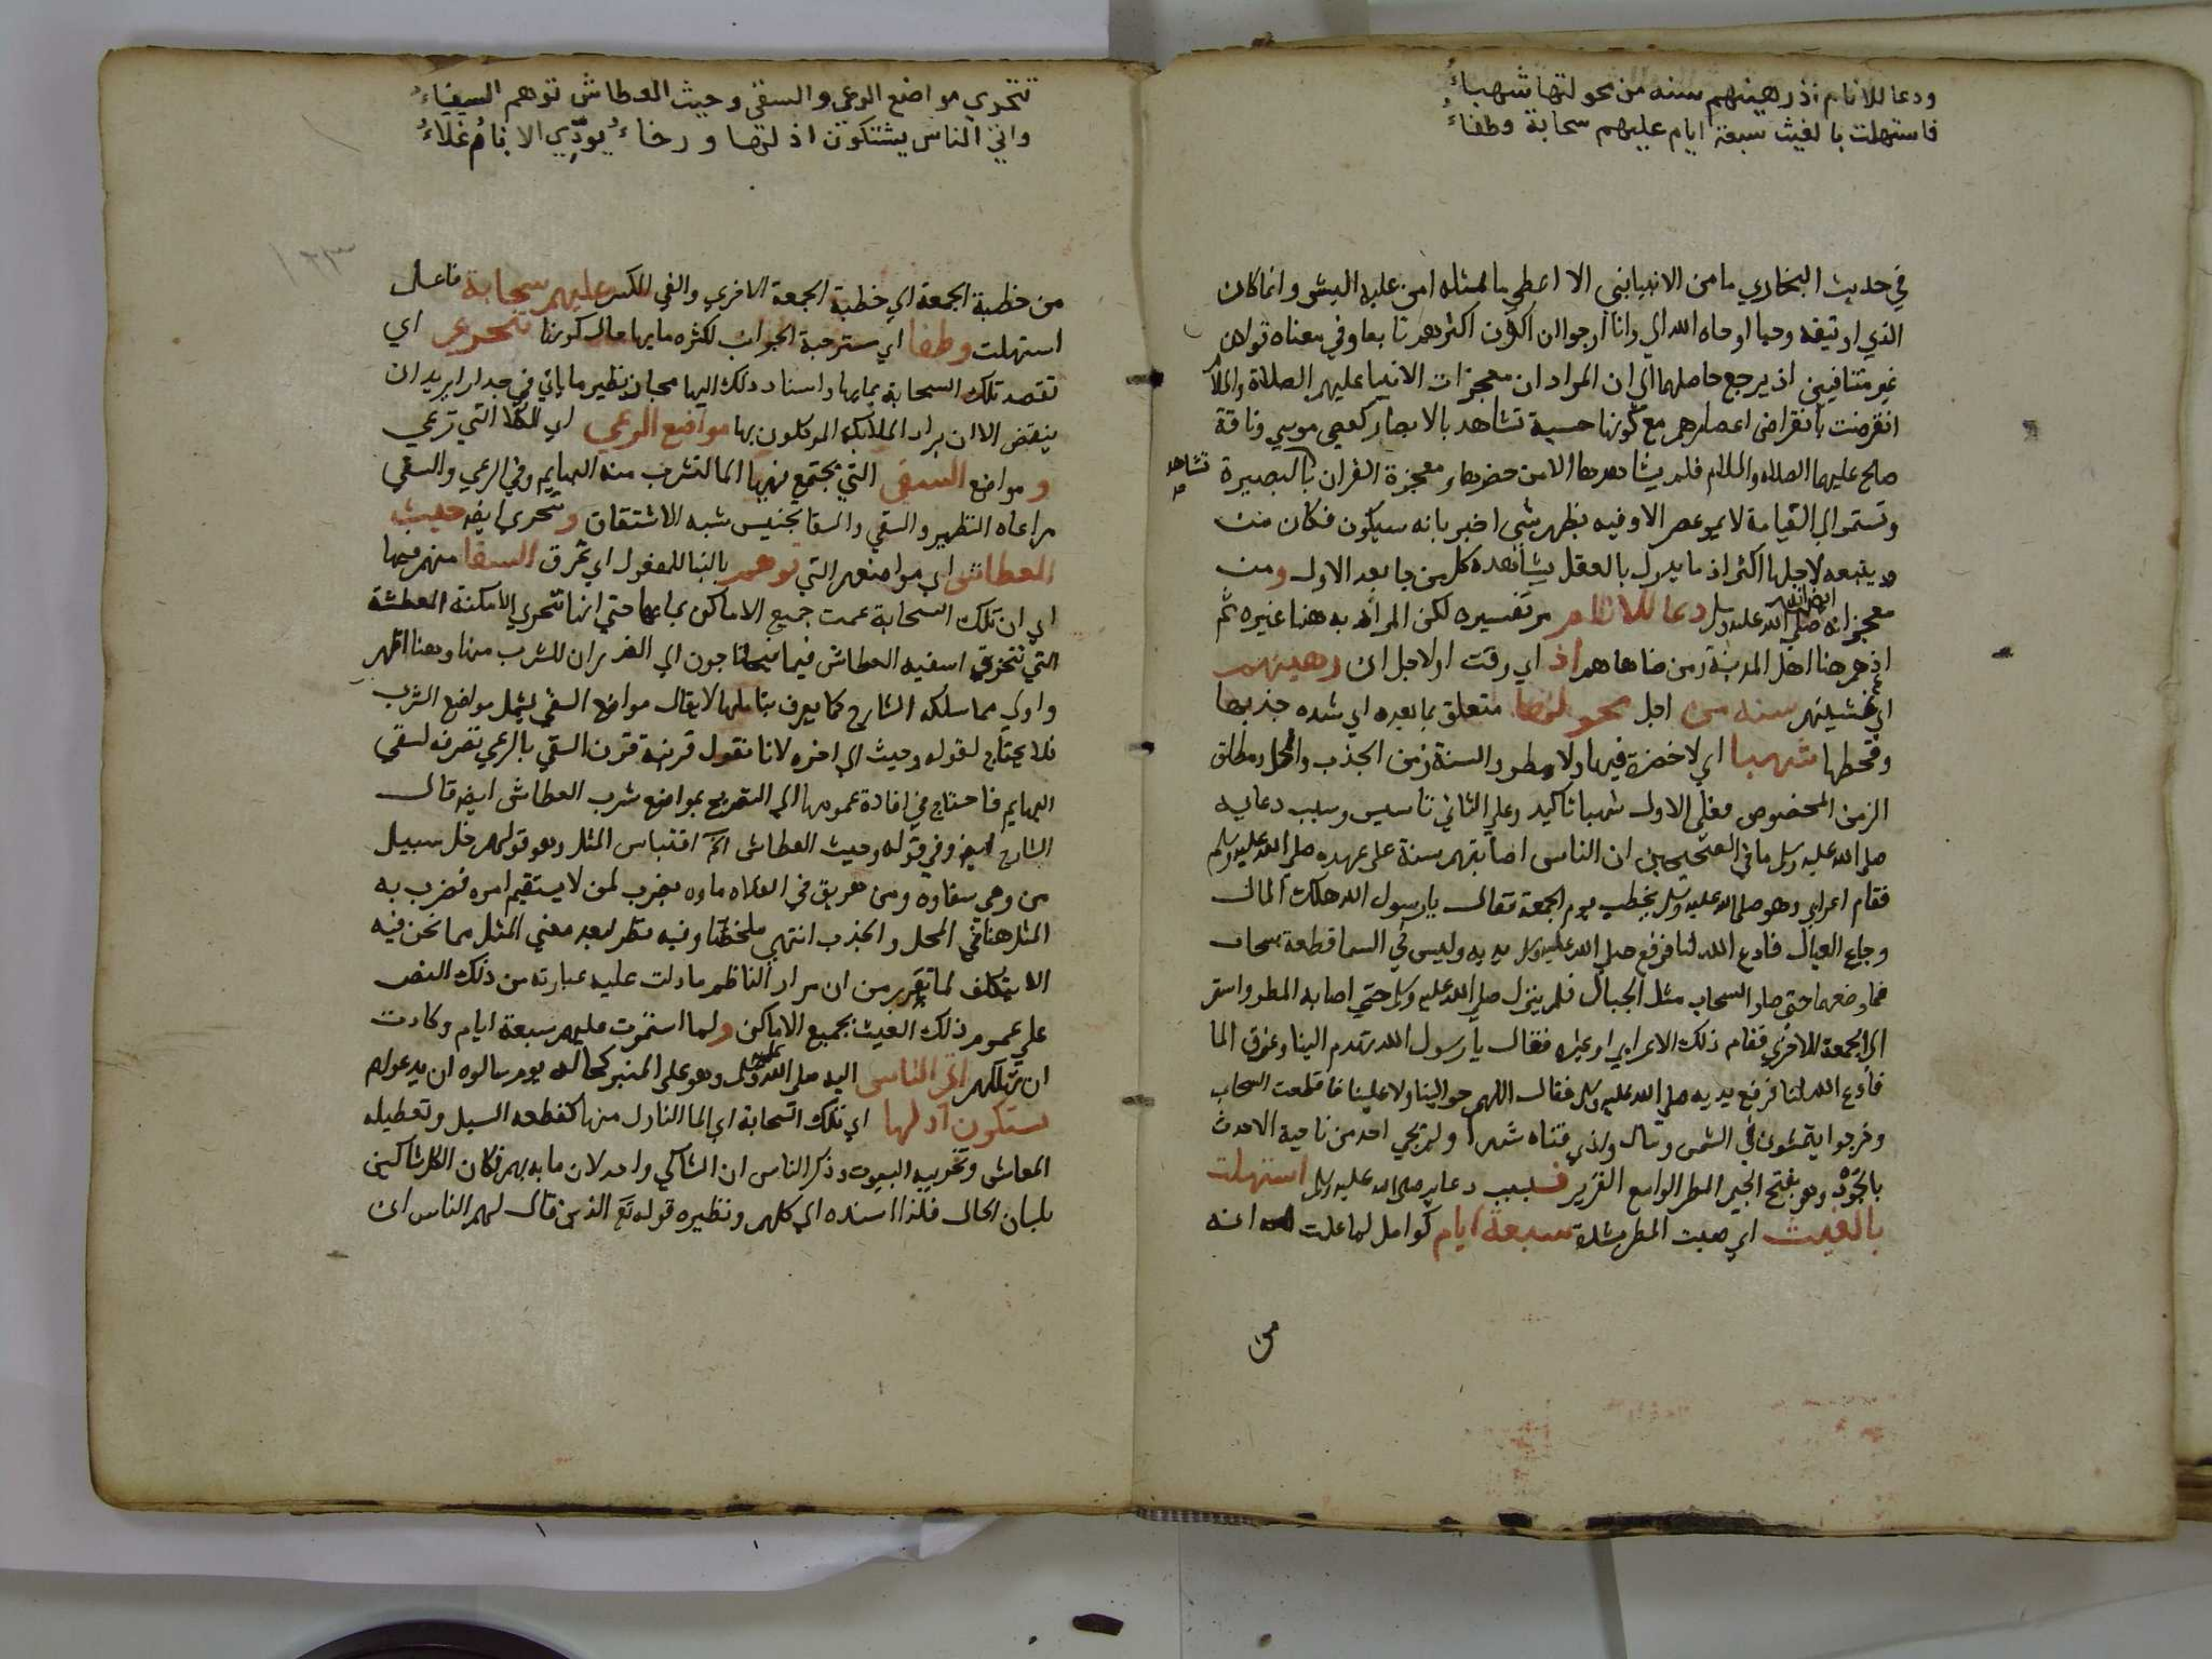 ودعا للانام اذ دهمتهم سنه من محولتها شهباءُ
فاستهلت بالغيث سبعة ايام عليهم سحابة وطفاءُ
في حديث البخاري ما من الانبيا نبي الا اعطي ما مثله امن عليه البشر وانما كان
الذي اوتيته وحيا اوحاه الله الي وانا ارجوا ان اكون اكثرهم تابعا وفي معناه قولان
غير متنافيين اذ يرجع حاصلهما الي ان المراد ان معجزات الانبيا عليهم الصلاة والسلام
انقرضت بانقراض اعصارهم مع كونها حسية تشاهد بالابصار كعصي موسي وناقة
صالح عليهما الصلاه والسلام فلم يشاهدها الا من حضرها ومعجزة القران تشاهد بالبصيرة
وتستمر الي القيامة لا يمر عصر الا وفيه يظهر شي اخبر بانه سيكون فكان من
يتبعه لاجلها اكثر اذ ما يدرك بالعقل يشاهده كل من جا بعد الاول ومن
معجزاته ايضا انه صلي الله عليه وسلم دعا للانام مر تفسيره لكن المراد به هنا غيره ثم
اذ هم هنا اهل المدينة ومن ضاهاهم اذ اي وقت او لاجل ان دهمتهم
اي غشيتهم سنه من اجل محولتها متعلق بما بعده اي شده جذبها
وقحطها شهبا اي لا خضرة فيها ولا مطر والسنة زمن الجذب والمحل ومطلق
الزمن المخصوص فعلي الاول شهبا تاكيد وعلي الثاني تاسيس وسبب دعايه
صلي الله عليه وسلم ما في الصحيحين ان الناس اصابتهم سنة علي عهده صلي الله عليه وسلم
فقام اعرابي وهو صلي الله عليه وسلم يخطب يوم الجمعة فقال يا رسول الله هلك المال
وجاع العيال فادع الله لنا فرفع صلي الله عليه وسلم يديه وليس في السما قطعة سحاب
فما وضعهما حتي صار السحاب مثل الجبال فلم ينزل صلي الله عليه وسلم حتي اصابه المطر واستمر
الي الجمعة الاخري فقام ذلك الاعرابي او غيره فقال يا رسول الله تهدم البنا وغرق المال
فادع الله لنا فرفع يديه صلي الله عليه وسلم فقال اللهم حوالينا ولا علينا فاقلعت السحاب
وخرجوا يمشون في الشمس وسال وادي قناه شهرا ولم يجي احد من ناحية الا حدث
بالجَوْد وهو بفتح الجيم المطر الواسع الغزير فبسبب دعايه صلي الله عليه وسلم استهلت
بالغيث اي صبت المطر بشدة سبعة ايام كوامل لما علمت انه
من
تتحري مواضع الرعي والسقي وحيث العطاش توهي السقاءُ
واتي الناس يشتكون اذاها ورخاءٌ يوذي الانام غلاءُ
١٢٣
من خطبة الجمعة الي خطبة الجمعة الاخري عليهم سحابة فاعل
استهلت وطفا اي مسترخية الجوانب لكثره مايها حال كونها تتحري اي
تقصد تلك السحابة بمايها واسناد ذلك اليها مجاز نظير ما ياتي في جدارا يريد ان
ينقض الا ان يراد الملايكة الموكلون بها مواضع الرعي اي الكلا التي ترعي
و مواضع السقي التي يجتمع فيها الما لتشرب منه البهايم وفي الرعي والسقي
مراعاه النظير والسقي والسقا تجنيس شبه الاشتقاق وتتحري ايضا حيث
العطاش اي مواضعهم التي توهي بالبنا للمفعول اي تخرق السقا منهم فيها
اي ان تلك السحابة عمت جميع الاماكن بمايها حتي انها تتحري الامكنة العطشة
التي تتخرق اسقيه العطاش فيما يحتاجون الي الغدران للشرب منها وهنا اظهر
واولي مما سلكه الشارح كما يعرف بتاملها لا يقال مواضع السقي يشمل مواضع الشرب
فلا يحتاج لقوله وحيث الي اخره لانا نقول قرينة قرن السقي بالرعي تصرفه لسقي
البهايم فاحتاج في افادة عمومها الي التصريح بمواضع شرب العطاش ايضا قال
الشارح ايضا وفي قوله وحيث العطاش الخ اقتباس المثل وهو قولهم خل سبيل
من وهي سقاوه ومن هريق في الفلاه ماوه يضرب لمن لا يستقيم امره فضرب به
المثل هنا في المحل والجذب انتهي ملخصا وفيه نظر لبعد معني المثل مما نحن فيه
الا بتكلف لما تقرر من ان مراد الناظم ما دلت عليه عبارته من ذلك النص
علي عموم ذلك الغيث بجميع الاماكن ولما استمرت عليهم سبعة ايام وكادت
ان تهلكهم اتي الناس اليه صلي الله عليه وسلم وهو علي المنبر كحاله يوم سالوه ان يدعو لهم
يشتكون اذاها اي تلك السحابة اي الما النازل منها كقطعه السبل وتعطيله
المعاش وتخريبه البيوت وذكر الناس ان الشاكي واحد لان ما به بهم فكان الكل شاكين
بلسان الحال فلذا اسنده الي كلهم ونظيره قوله تع الذين قال لهم الناس ان